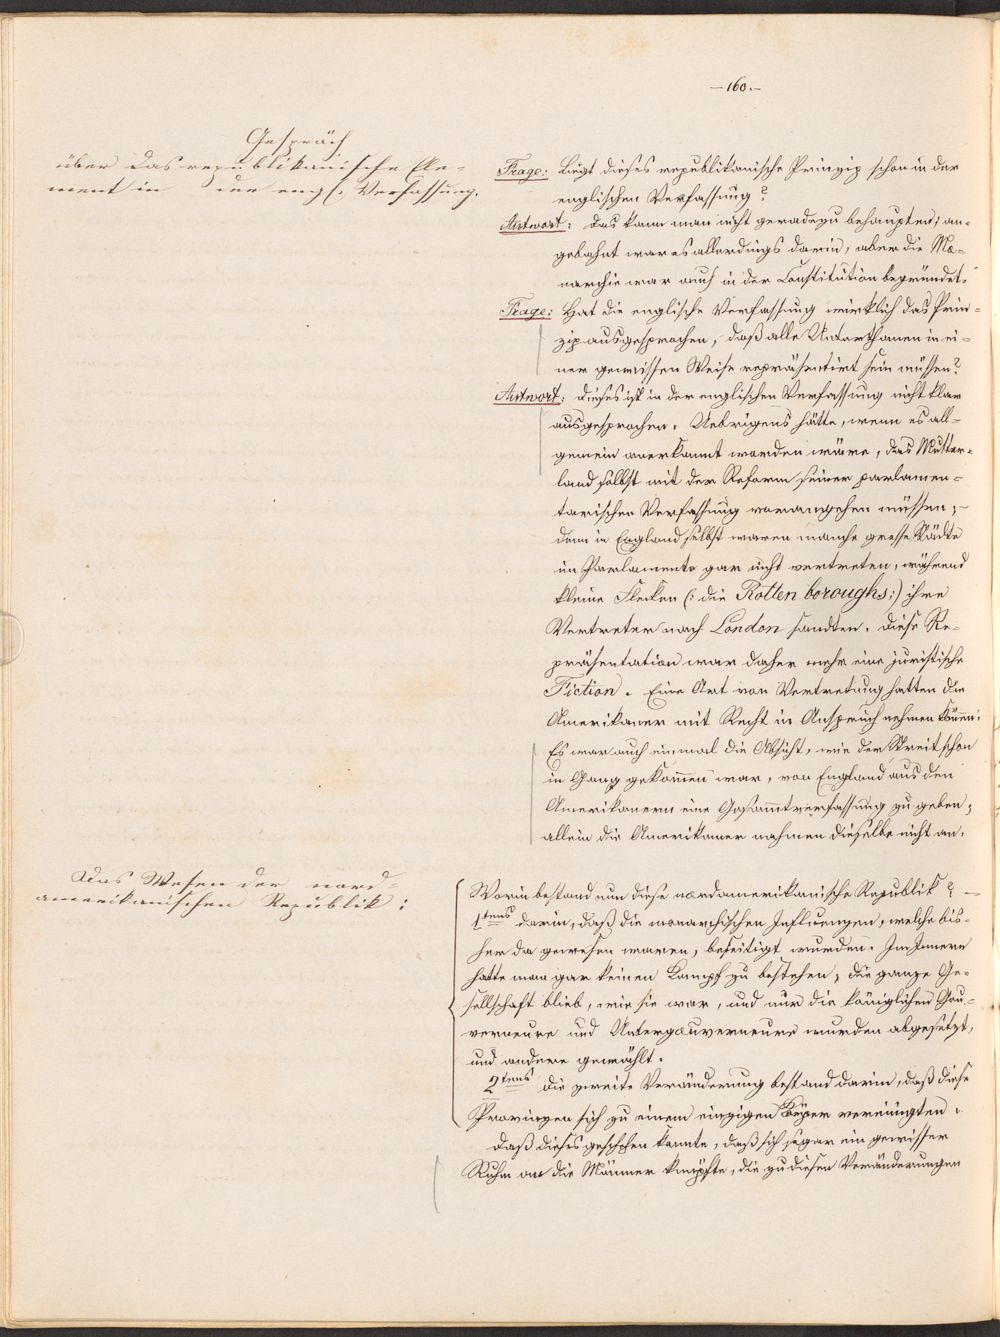 –160.–
Gespräch
über das republikanische Ele-
ment in der engl. Verfassung.
Frage: Liegt dieses republikanische Prinzip schon in der
englischen Verfassung?
Antwort: Das kann man nicht geradezu behaupten; an-
gebahnt war es allerdings darin, aber die Mo-
narchie war auch in der Constitution begründet.
Frage: Hat die englische Verfassung wirklich das Prin-
zip ausgesprochen, daß alle Unterthanen in ei-
ner gewissen Weise repräsentirt sein müssen?
Antwort: Dieses ist in der englischen Verfassung nicht klar
ausgesprochen. Uebrigens hätte, wenn es all-
gemein anerkannt worden wäre, das Mutter-
land selbst mit der Reform seiner parlamen-
tarischen Verfassung vorangehen müssen;
denn in England selbst waren manche grosse Städte
im Parlamente gar nicht vertreten, während
kleine Flecken (: die Rotten boroughs :) ihre
Vertreter nach London sandten. Diese Re-
präsentation war daher mehr eine juristische
Fiction. Eine Art von Vertretung hatten die
Amerikaner mit Recht in Anspruch nehmen können:
Es war auch einmal die Absicht, wie der Streit schon
in Gang gekommen war, von England aus den
Amerikanern eine Gesammtverfassung zu geben;
allein die Amerikaner nahmen dieselbe nicht an.
Das Wesen der nord-
amerikanischen Republik:
Worin bestand nun diese nordamerikanische Republik? –
1tens darin, daß die monarchischen Influenzen, welche bis-
her da gewesen waren, beseitigt wurden. Im Innern
hatte man gar keinen Kampf zu bestehen; die ganze Ge-
sellschaft blieb, wie sie war, und nur die königlichen Gou-
verneure und Untergouverneure wurden abgesetzt,
und andere gewählt.
2tens die zweite Veränderung bestand darin, daß diese
Provinzen sich zu einem einzigen Körper vereinigten.
Daß dieses geschehen konnte, daß sich sogar ein gewisser
Ruhm an die Männer knüpfte, die zu diesen Veränderungen